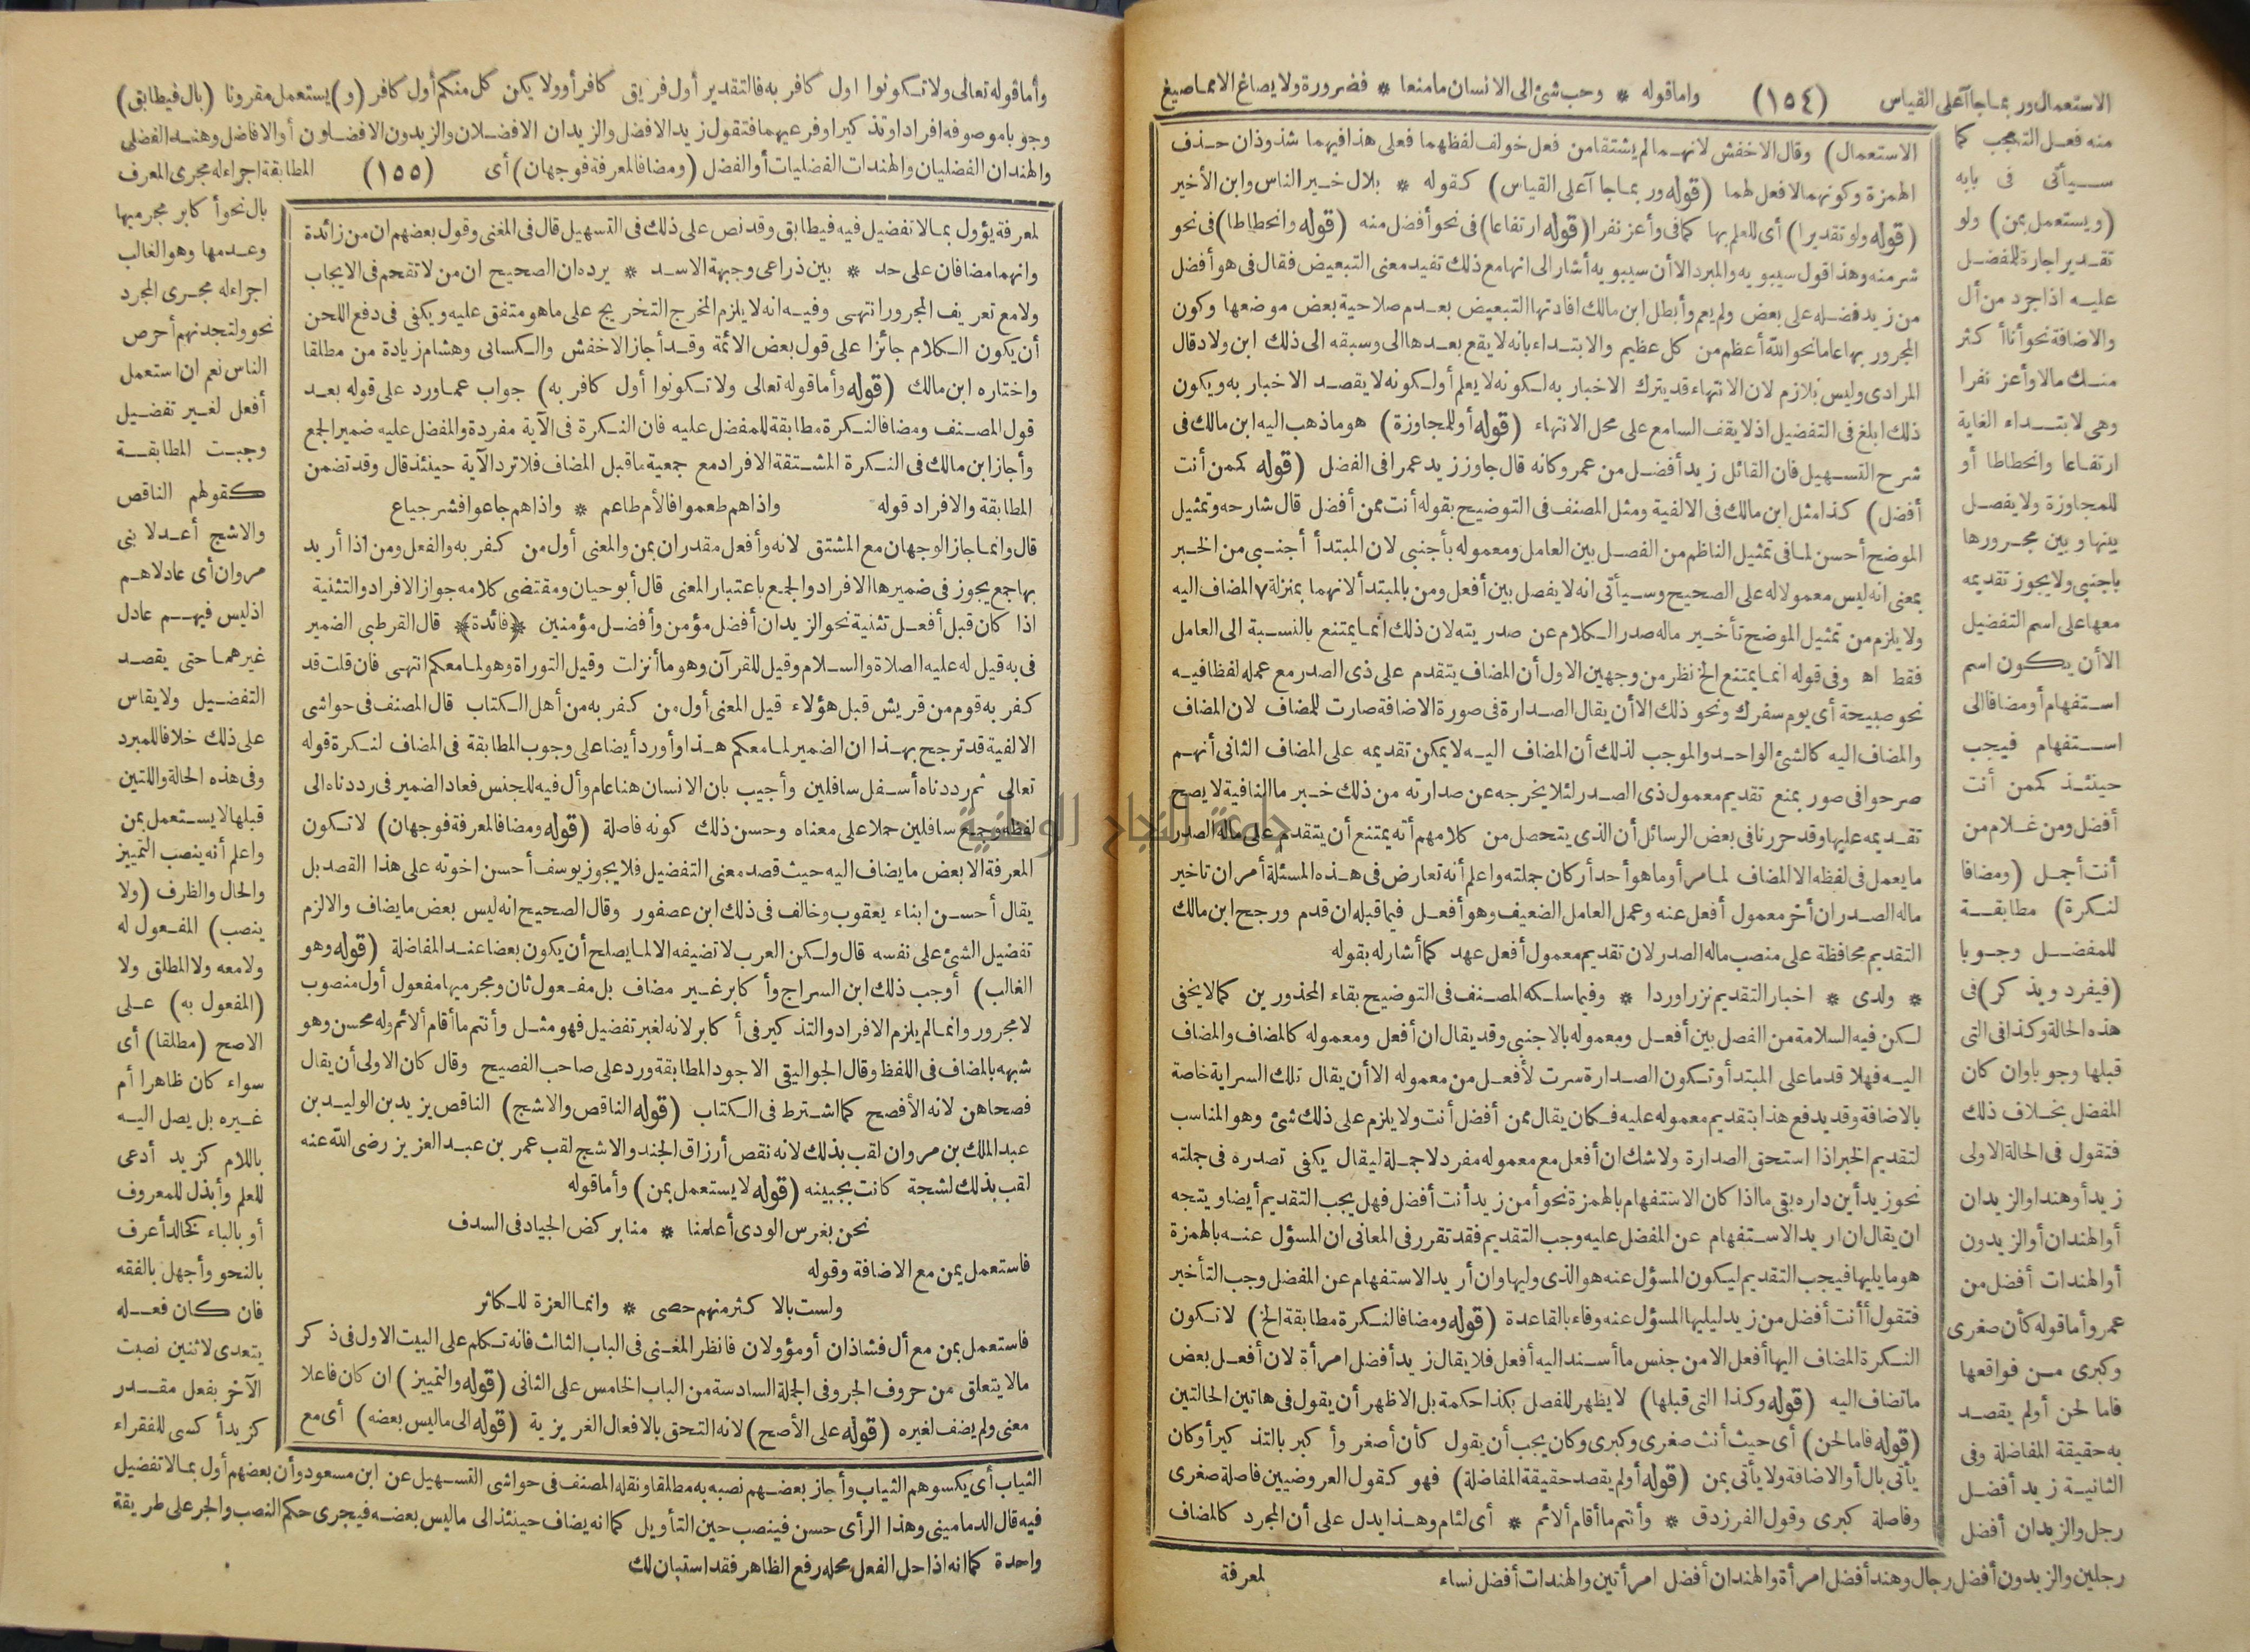 الاستعمال ور بما جاآ على القياس (١٥٤) واما قوله * وحب شئ الى الانسان ما منعا * فضرورة ولا يصاغ الا مما صيغ
منه فعل التعجب كما
سيأتى فى بابه
(ويستعمل بمن) ولو
تقديرا جارة للمفضل
عليه اذا جرد من أل
والاضافة نحو أنا أكثر
منك مالا وأعز نفرا
وهى لابتداء الغاية
ارتفاعا وانحطاطا أو
للمجاوزة ولا يفصل
بينها وبين مجرورها
باجنبى ولا يجوز تقديمه
معها على اسم التفضيل
الا أن يكون اسم
استفهام أو مضافا الى
استفهام فيجب
حينئذ كممن أنت
أفضل ومن غلام من
أنت أجمل (ومضافا
لنكرة) مطابقة
للمفضل وجوبا
(فيفرد ويذكر) فى
هذه الحالة وكذا فى التى
قبلها وجوبا وان كان
المفضل بخلاف ذلك
فتقول فى الحالة الاولى
زيد أو هند او الزيدان
أو الهندان أو الزيدون
أو الهندات أفضل من
عمرو أما قوله كأن صغرى
وكبرى من فواقعها
فاما لحن أو لم يقصد
به حقيقة المفاضلة وفى
الثانية زيد أفضل
رجل والزيدان أفضل
رجلين والزيدون أفضل رجال وهند أفضل امرأة والهندان أفضل امرأتين والهندات أفضل نساء
الاستعمال) وقال الاخفش لانهما لم يشتقا من فعل خولف لفظهما فعلى هذا فيهما شذوذان حذف
الهمزة وكونهما لا فعل لهما (قوله ور بما جاآ على القياس) كقوله * بلال خير الناس وابن الأخير
(قوله ولو تقديرا) أى للعلم بها كما فى وأعز نفرا (قوله ارتفاعا) فى نحو أفضل منه (قوله وانحطاطا) فى نحو
شر منه وهذا قول سيبويه والمبرد الا أن سيبويه أشار الى انها مع ذلك تفيد معنى التبعيض فقال فى هو أفضل
من زيد فضله على بعض ولم يعم وأبطل ابن مالك افادتها التبعيض بعدم صلاحية بعض موضعها وكون
المجرور بها عاما نحو الله أعظم من كل عظيم والابتداء بانه لا يقع بعدها الى وسبقه الى ذلك ابن ولاد قال
المرادى وليس بلازم لان الانتهاء قد يترك الاخبار به لكونه لا يعلم أو لكونه لا يقصد الاخبار به ويكون
ذلك ابلغ فى التفضيل اذ لا يقف السامع على محل الانتهاء (قوله أو للمجاوزة) هو ما ذهب اليه ابن مالك فى
شرح التسهيل فان القائل زيد أفضل من عمرو كانه قال جاوز زيد عمرا فى الفضل (قوله كممن أنت
أفضل) كذا مثل ابن مالك فى الالفية ومثل المصنف فى التوضيح بقوله أنت ممن أفضل قال شارحه وتمثيل
الموضح أحسن لما فى تمثيل الناظم من الفصل بين العامل ومعموله بأجنبى لان المبتدأ أجنبى من الخبر
بمعنى انه ليس معمولا له على الصحيح وسيأتى انه لا يفصل بين أفعل ومن بالمبتدأ لانهما بمنزلة ٧ المضاف اليه
ولا يلزم من تمثيل الموضح تأخير ما له صدر الكلام عن صدريته لان ذلك انما يمتنع بالنسبة الى العامل
فقط اه وفى قوله انما يمتنع الخ نظر من وجهين الاول أن المضاف يتقدم على ذى الصدر مع عمله لفظا فيه
نحو صبيحة أى يوم سفرك ونحو ذلك الا أن يقال الصدارة فى صورة الاضافة صارت للمضاف لان المضاف
والمضاف اليه كالشئ الواحد والموجب لذلك أن المضاف اليه لا يمكن تقديمه على المضاف الثانى أنهم
صرحوا فى صور بمنع تقديم معمول ذى الصدر لئلا يخرجه عن صدارته من ذلك خبر ما النافية لا يصح
تقديمه عليها وقد حررنا فى بعض الرسائل أن الذى يتحصل من كلامهم أنه يمتنع أن يتقدم على ما له الصدر
ما يعمل فى لفظه الا المضاف لما مر أو ما هو أحد أركان جملته واعلم أنه تعارض فى هذه المسئلة أمران تاخير
ماله الصدر ان أخر معمول أفعل عنه وعمل العامل الضعيف وهو أفعل فيما قبله ان قدم ورجح ابن مالك
التقديم محافظة على منصب ماله الصدر لان تقديم معمول أفعل عهد كما أشار له بقوله
* ولدى * اخبار التقديم نزرا وردا * وفيما سلكه المصنف فى التوضيح بقاء المحذورين كما لا يخفى
لكن فيه السلامة من الفصل بين أفعل ومعموله بالاجنبى وقد يقال ان أفعل ومعموله كالمضاف والمضاف
اليه فهلا قدما على المبتدأ وتكون الصدارة سرت لأفعل من معموله الا أن يقال تلك السراية خاصة
بالاضافة وقد يدفع هذا بتقديم معموله عليه فكان يقال ممن أفضل أنت ولا يلزم على ذلك شئ وهو المناسب
لتقديم الخبر اذا استحق الصدارة ولا شك ان أفعل مع معموله مفرد لا جملة ليقال يكفى تصدره فى جملته
نحو زيد أين داره بقى ما اذا كان الاستفهام بالهمزة نحو أمن زيد أنت أفضل فهل يجب التقديم أيضا ويتجه
ان يقال ان اريد الاستفهام عن المفضل عليه وجب التقديم فقد تقرر فى المعانى ان المسؤل عنه بالهمزة
هو ما يليها فيجب التقديم ليكون المسؤل عنه هو الذى وليها وان أريد الاستفهام عن المفضل وجب التأخير
فتقول أأنت أفضل من زيد ليليها المسؤل عنه وفاء بالقاعدة (قوله ومضافا لنكرة مطابقة الخ) لا تكون
النكرة المضاف اليها أفعل الا من جنس ما أسند اليه أفعل فلا يقال زيد أفضل امرأة لان أفعل بعض
ما تضاف اليه (قوله وكذا التى قبلها) لا يظهر للفصل بكذا حكمة بل الاظهر أن يقول فى هاتين الحالتين
(قوله فاما لحن) أى حيث أنث صغرى وكبرى وكان يجب أن يقول كأن أصغر وأكبر بالتذكير أو كان
يأتى بال أو الاضافة ولا يأتى بمن (قوله أو لم يقصد حقيقة المفاضلة) فهو كقول العروضيين فاصلة صغرى
وفاصلة كبرى وقول الفرزدق * وأنتم ما أقام ألائم * أى لئام وهذا يدل على أن المجرد كالمضاف
لمعرفة
وأما قوله تعالى ولا تكونوا اول كافر به فالتقدير أول فريق كافر أو ولا يكن كل منكم أول كافر (و) يستعمل مقرونا (بال فيطابق)
وجوبا موصوفه افرادا وتذكيرا وفرعيهما فتقول زيد الافضل والزيدان الافضلان والزيدون الافضلون أو الافاضل وهند الفضلى
والهندان الفضليان والهندات الفضليات أو الفضل (ومضافا لمعرفة فوجهان) أى (١٥٥) المطابقة اجراء له مجرى المعرف
بال نحو أكابر مجرميها
وعدمها وهو الغالب
اجراء له مجرى المجرد
نحو ولتجدنهم أحرص
الناس نعم ان استعمل
أفعل لغير تفضيل
وجبت المطابقة
كقولهم الناقص
والاشج أعدلا بنى
مروان أى عادلاهم
اذ ليس فيهم عادل
غيرهما حتى يقصد
التفضيل ولا يقاس
على ذلك خلافا للمبرد
وفى هذه الحالة واللتين
قبلها لا يستعمل بمن
واعلم أنه ينصب التمييز
والحال والظرف (ولا
ينصب) المفعول له
ولا معه ولا المطلق ولا
(المفعول به) على
الاصح (مطلقا) أى
سواء كان ظاهرا أم
غيره بل يصل اليه
باللام كزيد أدعى
للعلم وأبذل للمعروف
أو بالباء كخالد أعرف
بالنحو وأجهل بالفقه
فان كان فعله
يتعدى لاثنين نصبت
الآخر بفعل مقدر
كزيد أكسى للفقراء
لمعرفة يؤول بما لا تفضيل فيه فيطابق وقد نص على ذلك فى التسهيل قال فى المغنى وقول بعضهم ان من زائدة
وانهما مضافان على حد * بين ذراعى وجبهة الاسد * يرده ان الصحيح ان من لا تقحم فى الايجاب
ولا مع تعريف المجرور انتهى وفيه انه لا يلزم المخرج التخريج على ما هو متفق عليه ويكفى فى دفع اللحن
أن يكون الكلام جائزا على قول بعض الائمة وقد أجاز الاخفش والكسائى وهشام زيادة من مطلقا
واختاره ابن مالك (قوله وأما قوله تعالى ولا تكونوا أول كافر به) جواب عما ورد على قوله بعد
قول المصنف ومضافا لنكرة مطابقة للمفضل عليه فان النكرة فى الآية مفردة والمفضل عليه ضمير الجمع
وأجاز ابن مالك فى النكرة المشتقة الافراد مع جمعية ما قبل المضاف فلا ترد الآية حينئذ قال وقد تضمن
المطابقة والافراد قوله واذا هم طعموا فالأم طاعم * واذا هم جاعوا فشر جياع
قال وانما جاز الوجهان مع المشتق لانه وأفعل مقدران بمن والمعنى أول من كفر به والفعل ومن اذا أريد
بها جمع يجوز فى ضميرها الافراد والجمع باعتبار المعنى قال أبو حيان ومقتضى كلامه جواز الافراد والتثنية
اذا كان قبل أفعل تثنية نحو الزيدان أفضل مؤمن وأفضل مؤمنين *(فائدة)* قال القرطبى الضمير
فى به قيل له عليه الصلاة والسلام وقيل للقرآن وهو ما أنزلت وقيل التوراة وهو لما معكم انتهى فان قلت قد
كفر به قوم من قريش قبل هؤلاء قيل المعنى أول من كفر به من أهل الكتاب قال المصنف فى حواشى
الالفية قد ترجح بهذا ان الضمير لما معكم هذا وأورد أيضا على وجوب المطابقة فى المضاف لنكرة قوله
تعالى ثم رددناه أسفل سافلين وأجيب بان الانسان هنا عام وأل فيه للجنس فعاد الضمير فى رددناه الى
لفظه وجمع سافلين حملا على معناه وحسن ذلك كونه فاصلة (قوله ومضافا لمعرفة فوجهان) لا تكون
المعرفة الا بعض ما يضاف اليه حيث قصد معنى التفضيل فلا يجوز يوسف أحسن اخوته على هذا القصد بل
يقال أحسن ابناء يعقوب وخالف فى ذلك ابن عصفور وقال الصحيح انه ليس بعض ما يضاف والا لزم
تفضيل الشئ على نفسه قال ولكن العرب لا تضيفه الا لما يصلح أن يكون بعضا عند المفاضلة (قوله وهو
الغالب) أوجب ذلك ابن السراج وأكابر غير مضاف بل مفعول ثان ومجرميها مفعول أول منصوب
لا مجرور وانما لم يلزم الافراد والتذكير فى أكابر لانه لغير تفضيل فهو مثل وأنتم ما أقام ألائم وله محسن وهو
شبهه بالمضاف فى اللفظ وقال الجواليقى الاجود المطابقة ورد على صاحب الفصيح وقال كان الاولى أن يقال
فصحاهن لانه الأفصح كما اشترط فى الكتاب (قوله الناقص والاشج) الناقص يزيد بن الوليد بن
عبد الملك بن مروان لقب بذلك لانه نقص أرزاق الجند والاشج لقب عمر بن عبد العزيز رضى الله عنه
لقب بذلك لشجة كانت بجبينه (قوله لا يستعمل بمن) وأما قوله
نحن بغرس الودى أعلمنا * منا بركض الجياد فى السدف
فاستعمل بمن مع الاضافة وقوله
ولست بالاكثر منهم حصى * وانما العزة للكاثر
فاستعمل بمن مع أل فشاذان أو مؤولان فانظر المغنى فى الباب الثالث فانه تكلم على البيت الاول فى ذكر
مالا يتعلق من حروف الجر وفى الجملة السادسة من الباب الخامس على الثانى (قوله والتمييز) ان كان فاعلا
معنى ولم يضف لغيره (قوله على الأصح) لانه التحق بالافعال الغريزية (قوله الى ما ليس بعضه) أى مع
الثياب أى يكسوهم الثياب وأجاز بعضهم نصبه به مطلقا ونقله المصنف فى حواشى التسهيل عن ابن مسعود وأن بعضهم أول بما لا تفضيل
فيه قال الدمامينى وهذا الرأى حسن فينصب حين التأويل كما انه يضاف حينئذ الى ما ليس بعضه فيجرى حكم النصب والجر على طريقة
واحدة كما انه اذا حل الفعل محله رفع الظاهر فقد استبان لك
جامعة النجاح الوطنية